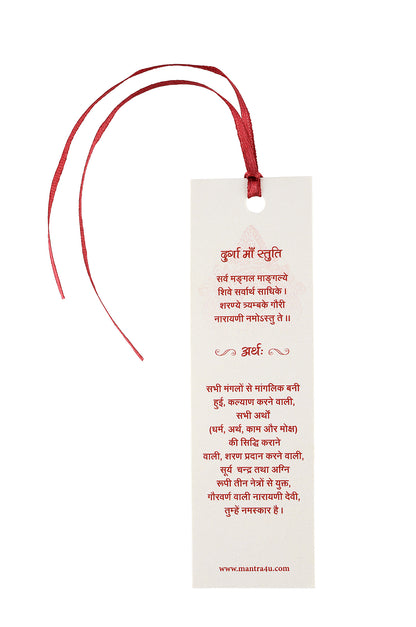 दुर्गा माँ स्तुति
सर्व मङ्गल माङ्गल्ये
शिवे सर्वार्थ साधिके।
शरण्ये त्र्यम्बके गौरी
नारायणी नमोऽस्तु ते॥
अर्थः
सभी मंगलों से मांगलिक बनी
हुई, कल्याण करने वाली,
सभी अर्थों
(धर्म, अर्थ, काम और मोक्ष)
की सिद्धि कराने
वाली, शरण प्रदान करने वाली,
सूर्य चन्द्र तथा अग्नि
रूपी तीन नेत्रों से युक्त,
गौरवर्ण वाली नारायणी देवी,
तुम्हें नमस्कार है।
www.mantra4u.com